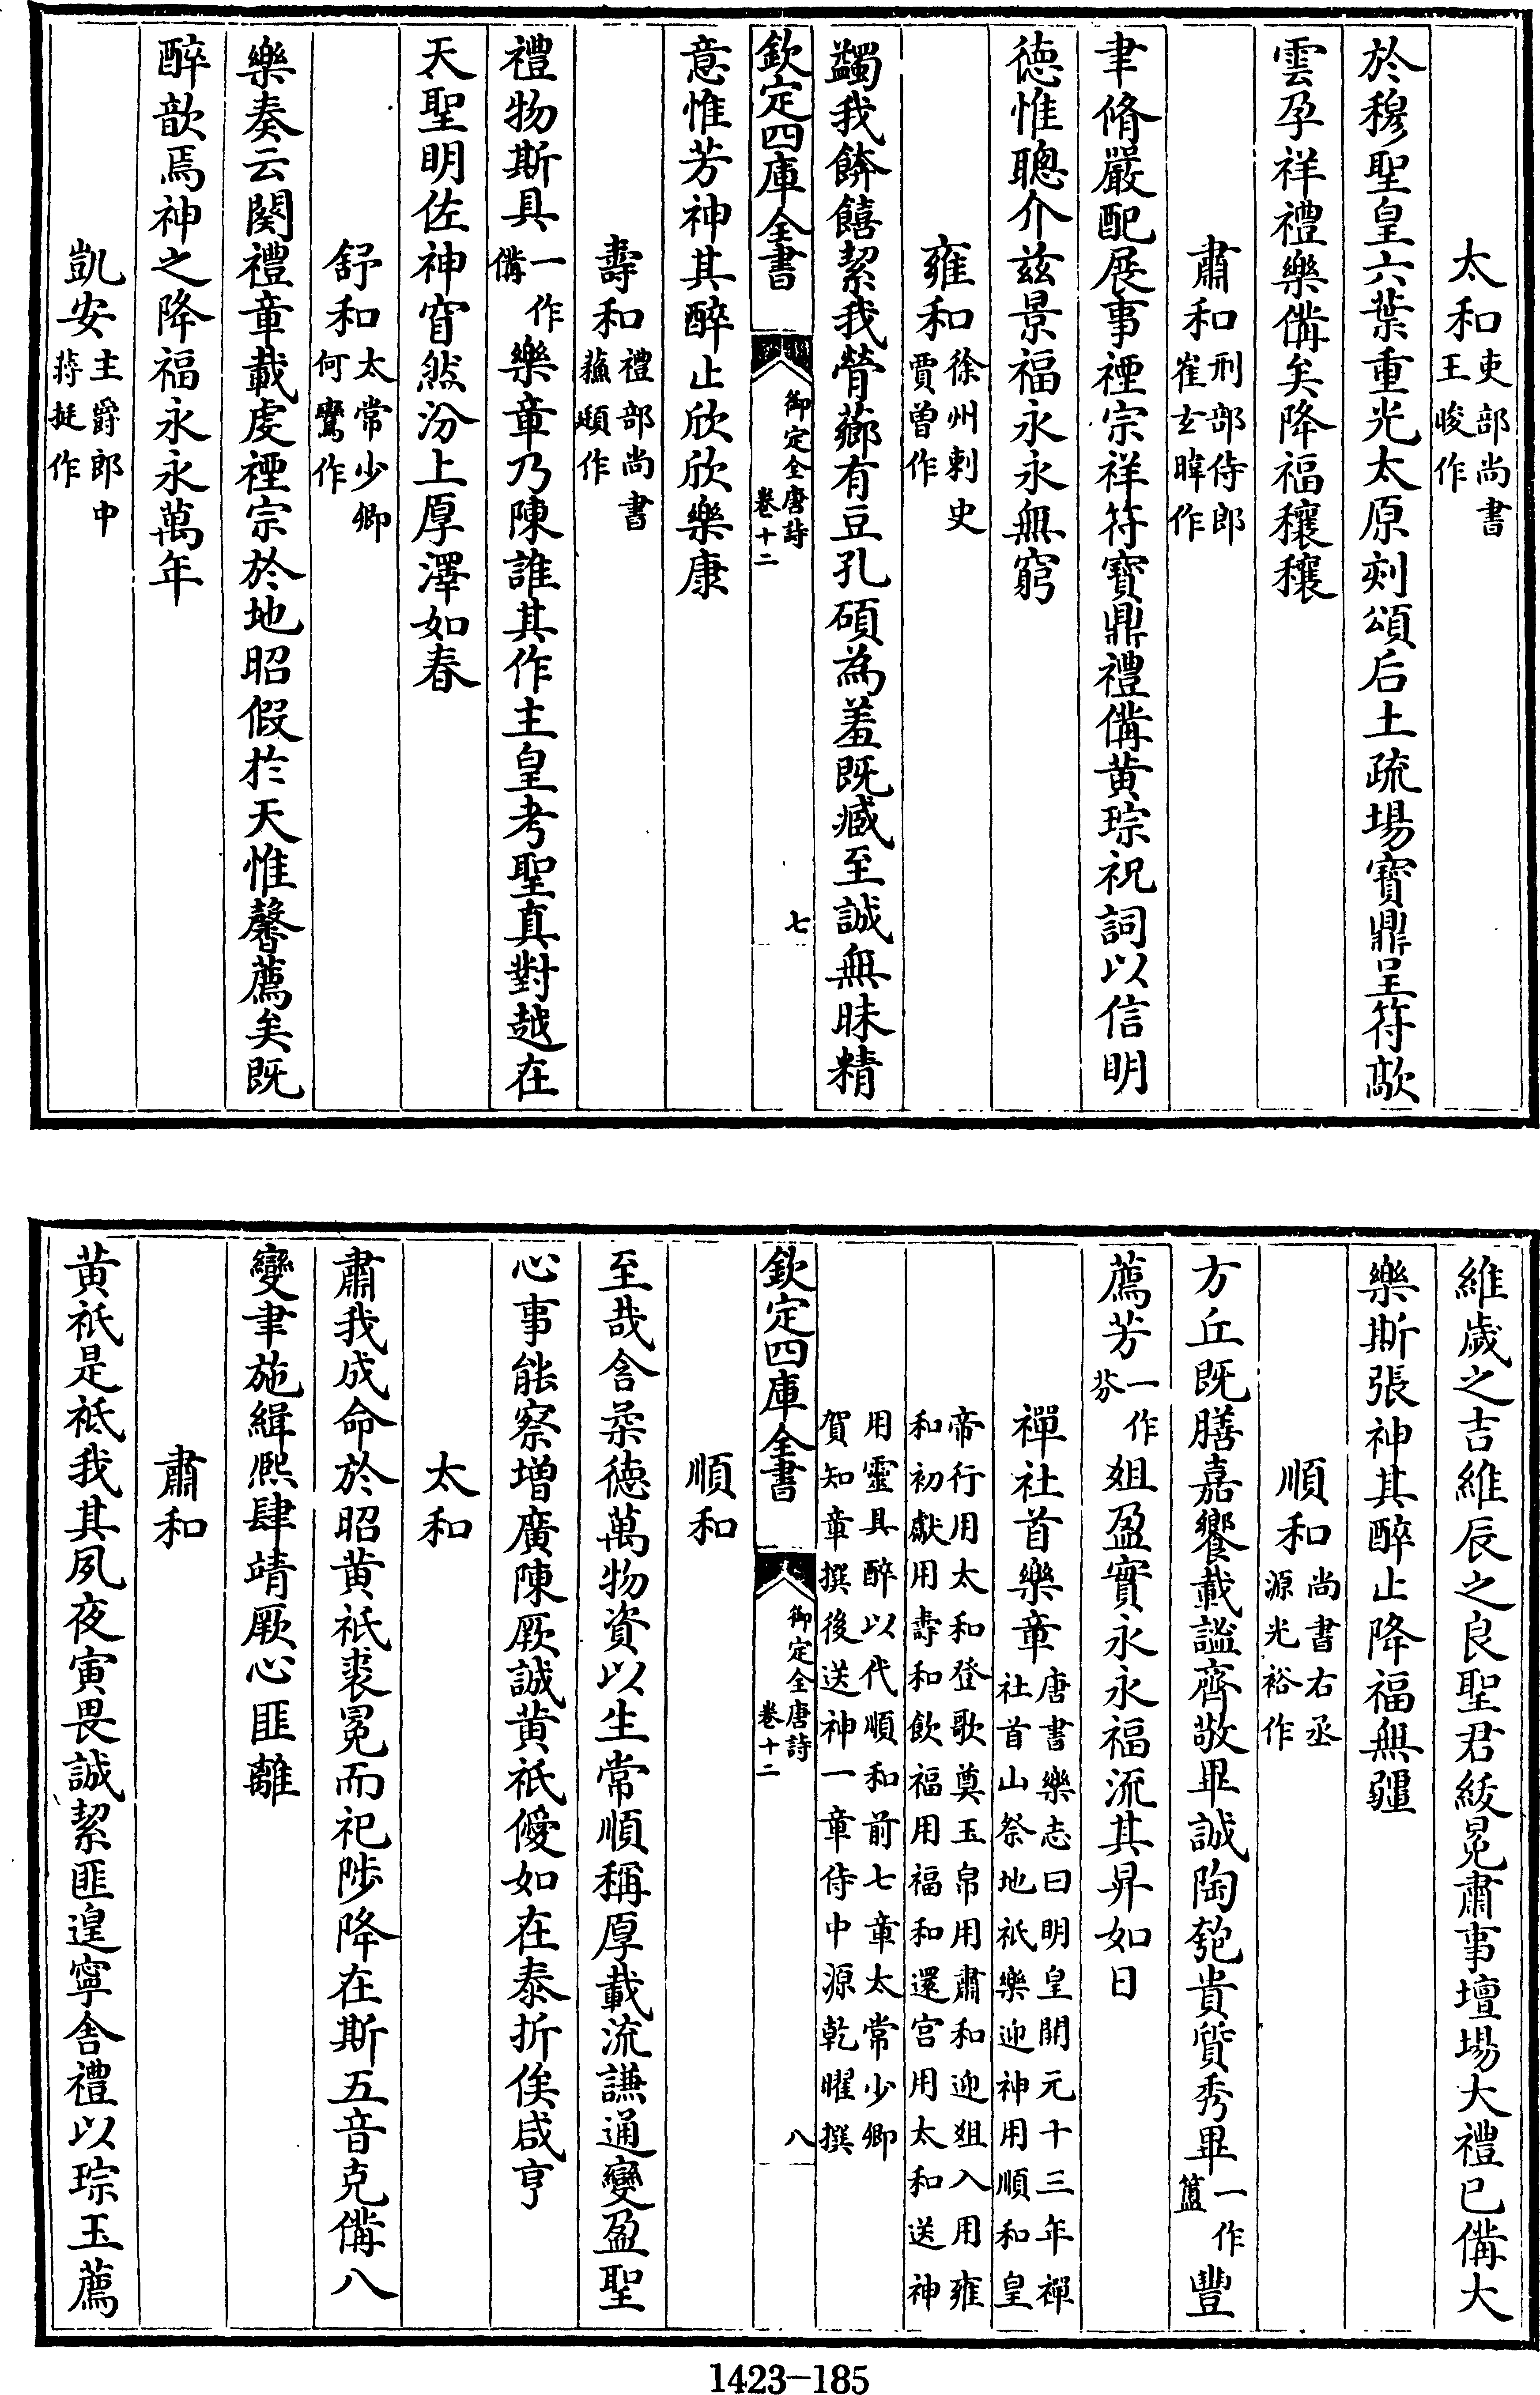 太和吏部尚書王晙作
於穆聖皇六葉重光太原刻頌后土疏場寶鼎呈符歊
雲孕祥禮樂備矣降福穰穰
肅和刑部侍郎崔玄暐作
聿脩嚴配展事禋宗祥符寶鼎禮備黄琮祝詞以信明
徳惟聰介兹景福永永無窮
雍和徐州刺史賈曾作
蠲我餴饎絜我膋薌有豆孔碩為羞既臧至誠無昧精
欽定四庫全書 御定全唐詩卷十二 七
意惟芳神其醉止欣欣樂康
壽和禮部尚書蘇頲作
禮物斯具一作備樂章乃陳誰其作主皇考聖真對越在
天聖明佐神窅然汾上厚澤如春
舒和太常少卿何鸞作
樂奏云闋禮章載虔禋宗於地昭假於天惟馨薦矣既
醉歆焉神之降福永永萬年
凱安主爵郎中蔣挺作
維歲之吉維辰之良聖君紱冕肅事壇場大禮已備大
樂斯張神其醉止降福無疆
順和尚書右丞源光裕作
方丘既膳嘉饗載謐齊敬畢誠陶匏貴質秀畢一作簠豐
薦芳一作芬俎盈實永永福流其昇如日
禪社首樂章唐書樂志曰明皇開元十三年禪社首山祭地祇樂迎神用順和皇
帝行用太和登歌奠玉帛用肅和迎俎入用雍和初獻用壽和飲福用福和還宫用太和送神
用靈具醉以代順和前七章太常少卿賀知章撰後送神一章侍中源乾曜撰
欽定四庫全書 御定全唐詩卷十二 八
順和
至哉含柔徳萬物資以生常順稱厚載流謙通變盈聖
心事能察增廣陳厥誠黄祇僾如在泰折俟咸亨
太和
肅我成命於昭黄祇裘冕而祀陟降在斯五音克備八
變聿施緝熙肆靖厥心匪離
肅和
黄祇是祗我其夙夜寅畏誠絜匪遑寧舍禮以琮玉薦
1423-185